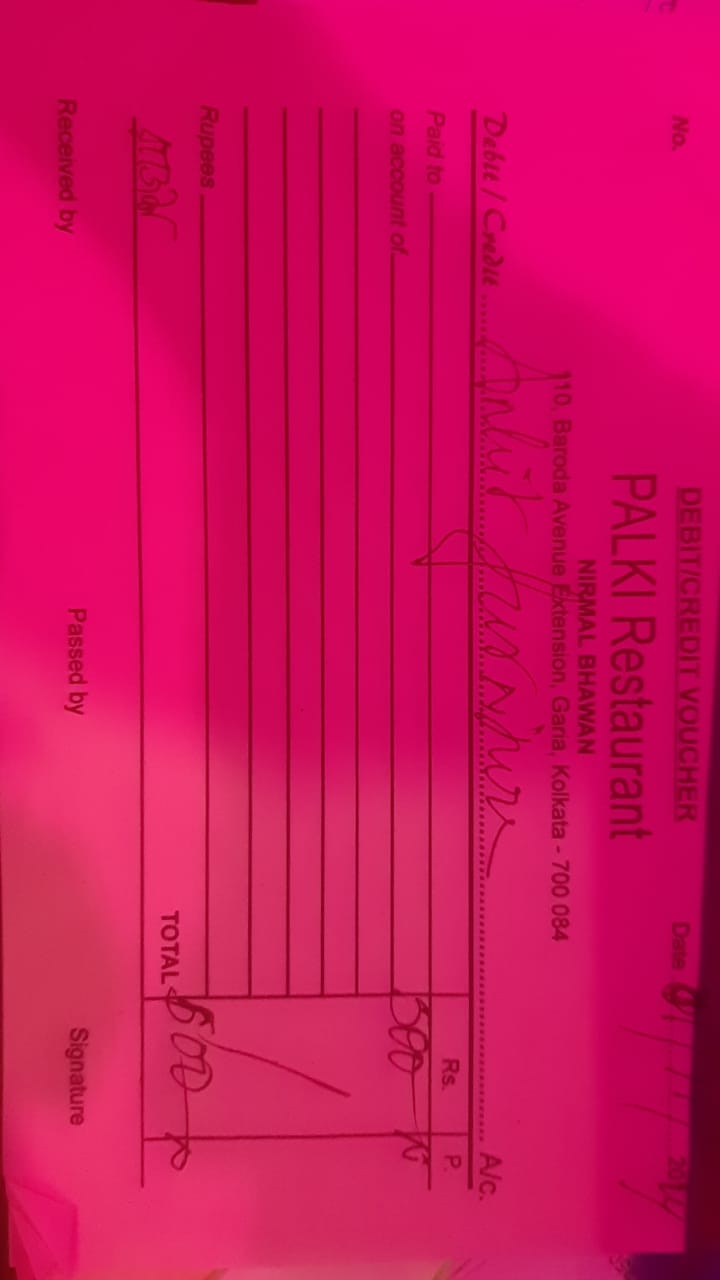 DEBIT/CREDIT VOUCHER
No. Date 9/11/2024
PALKI Restaurant
NIRMAL BHAWAN
110, Baroda Avenue Extension, Garia, Kolkata - 700 084
Debit / Credit ........ A/c.
Rs. P.
Paid to
on account of 500
Rupees
TOTAL 500
Received by Passed by Signature